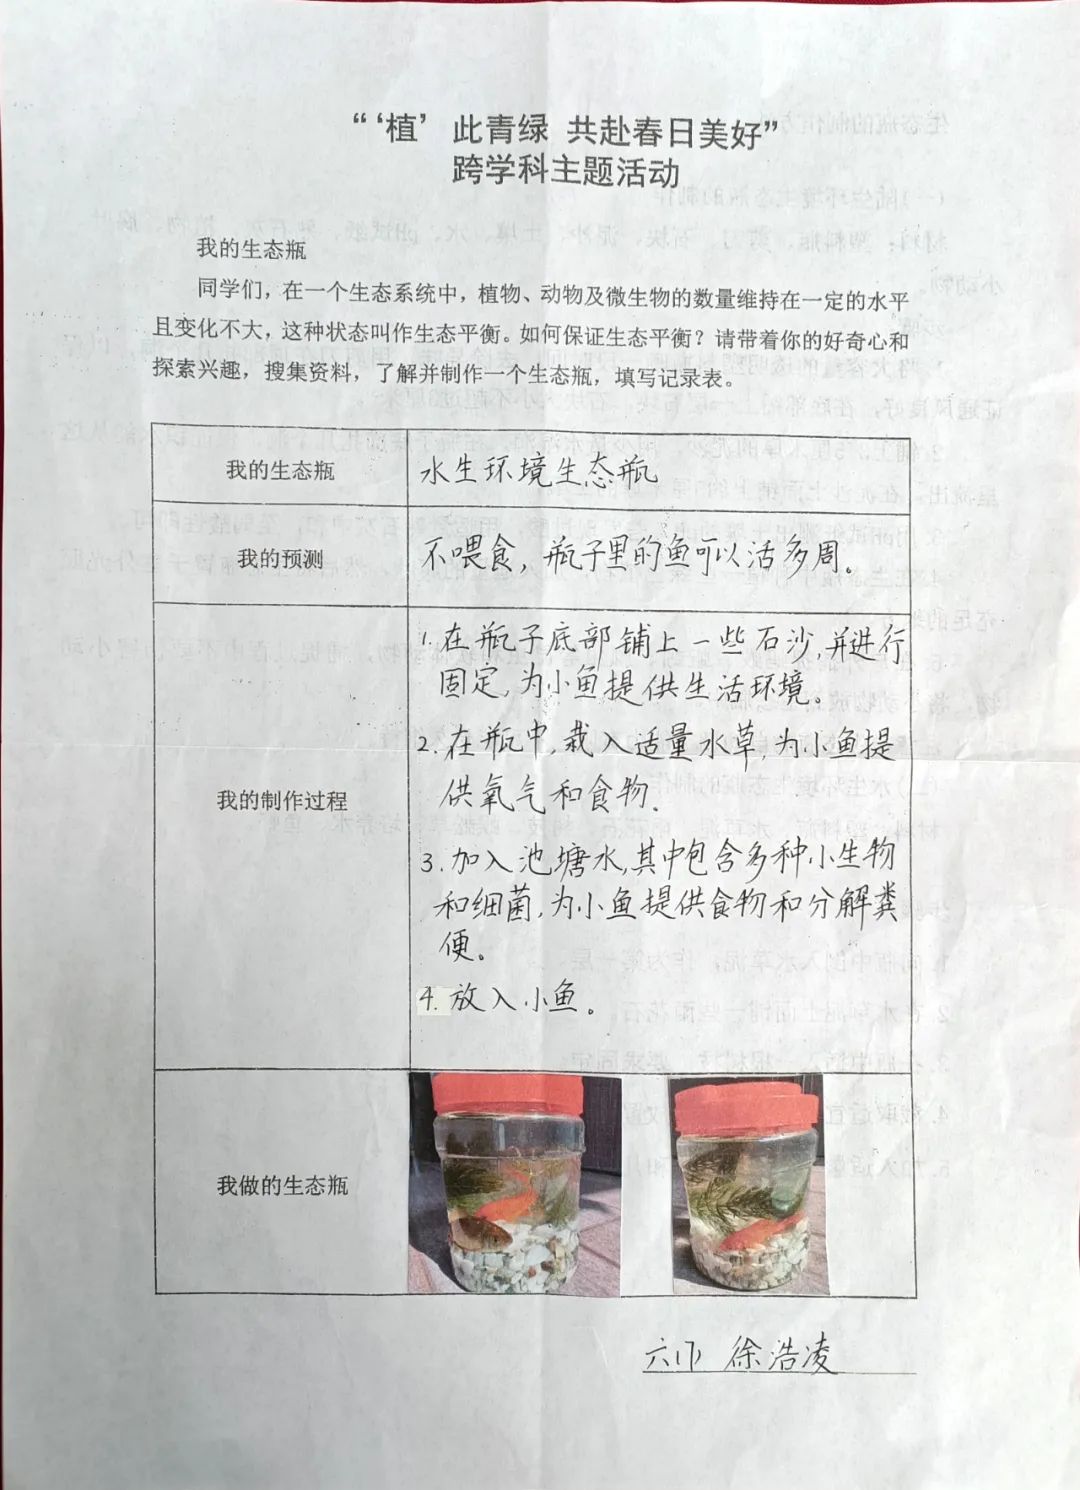 “‘植’此青绿 共赴春日美好”
跨学科主题活动
我的生态瓶
同学们，在一个生态系统中，植物、动物及微生物的数量维持在一定的水平
且变化不大，这种状态叫作生态平衡。如何保证生态平衡？请带着你的好奇心和
探索兴趣，搜集资料，了解并制作一个生态瓶，填写记录表。
我的生态瓶
水生环境生态瓶
我的预测
不喂食，瓶子里的鱼可以活多周。
我的制作过程
1.在瓶子底部铺上一些石沙,并进行
固定,为小鱼提供生活环境。
2.在瓶中,栽入适量水草,为小鱼提
供氧气和食物.
3.加入池塘水,其中包含多种小生物
和细菌,为小鱼提供食物和分解粪
便。
4.放入小鱼。
我做的生态瓶
六(1) 徐浩凌